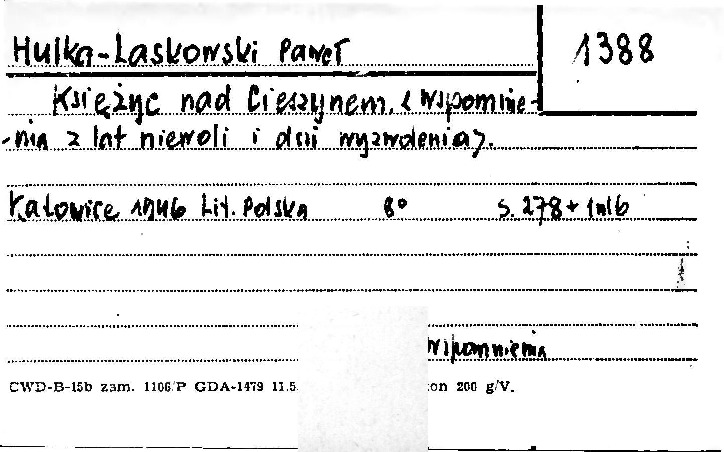 Hulka-Laskowski Paweł
1388
Księżyc nad Cieszynem. < Wspomnie-
-nia z lat niewoli i dni wyzwolenia>.
Katowice 1946 Lit. Polska 8° s. 278 + 1nlb
Wspomnienia
CWD-B-15b zam. 1106/P GDA-1479 11.5 on 200 g/V.